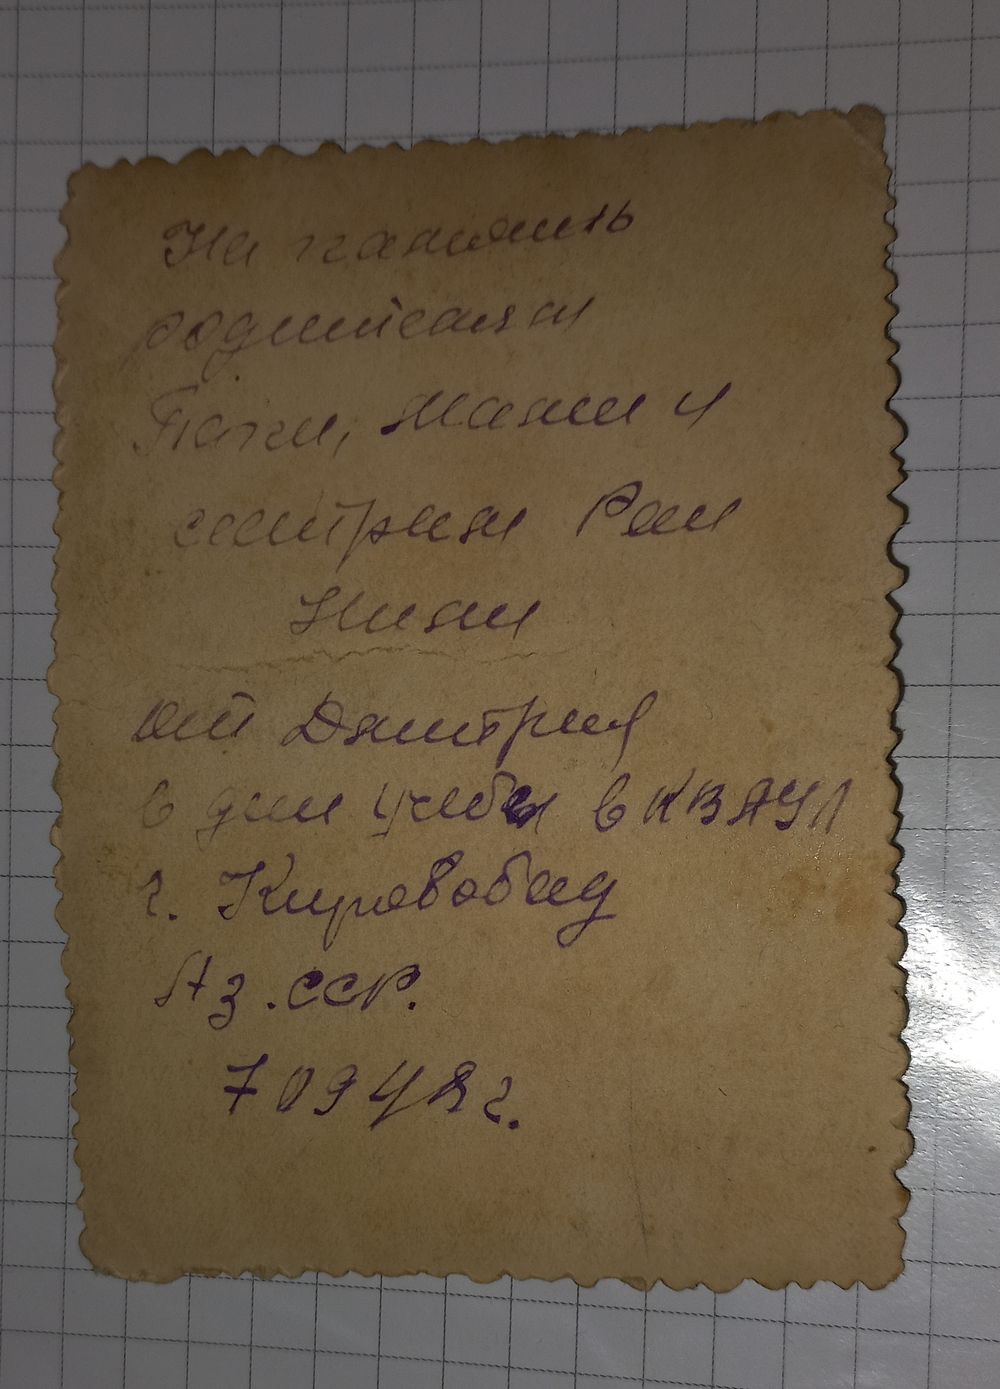 На память
родителям
Папи, Мами и
систрам Раи
Нини
от Дмитрия
в дни учебы в КВАУЛ
г. Кировобад
Аз.ССР.
7 09 48 г.